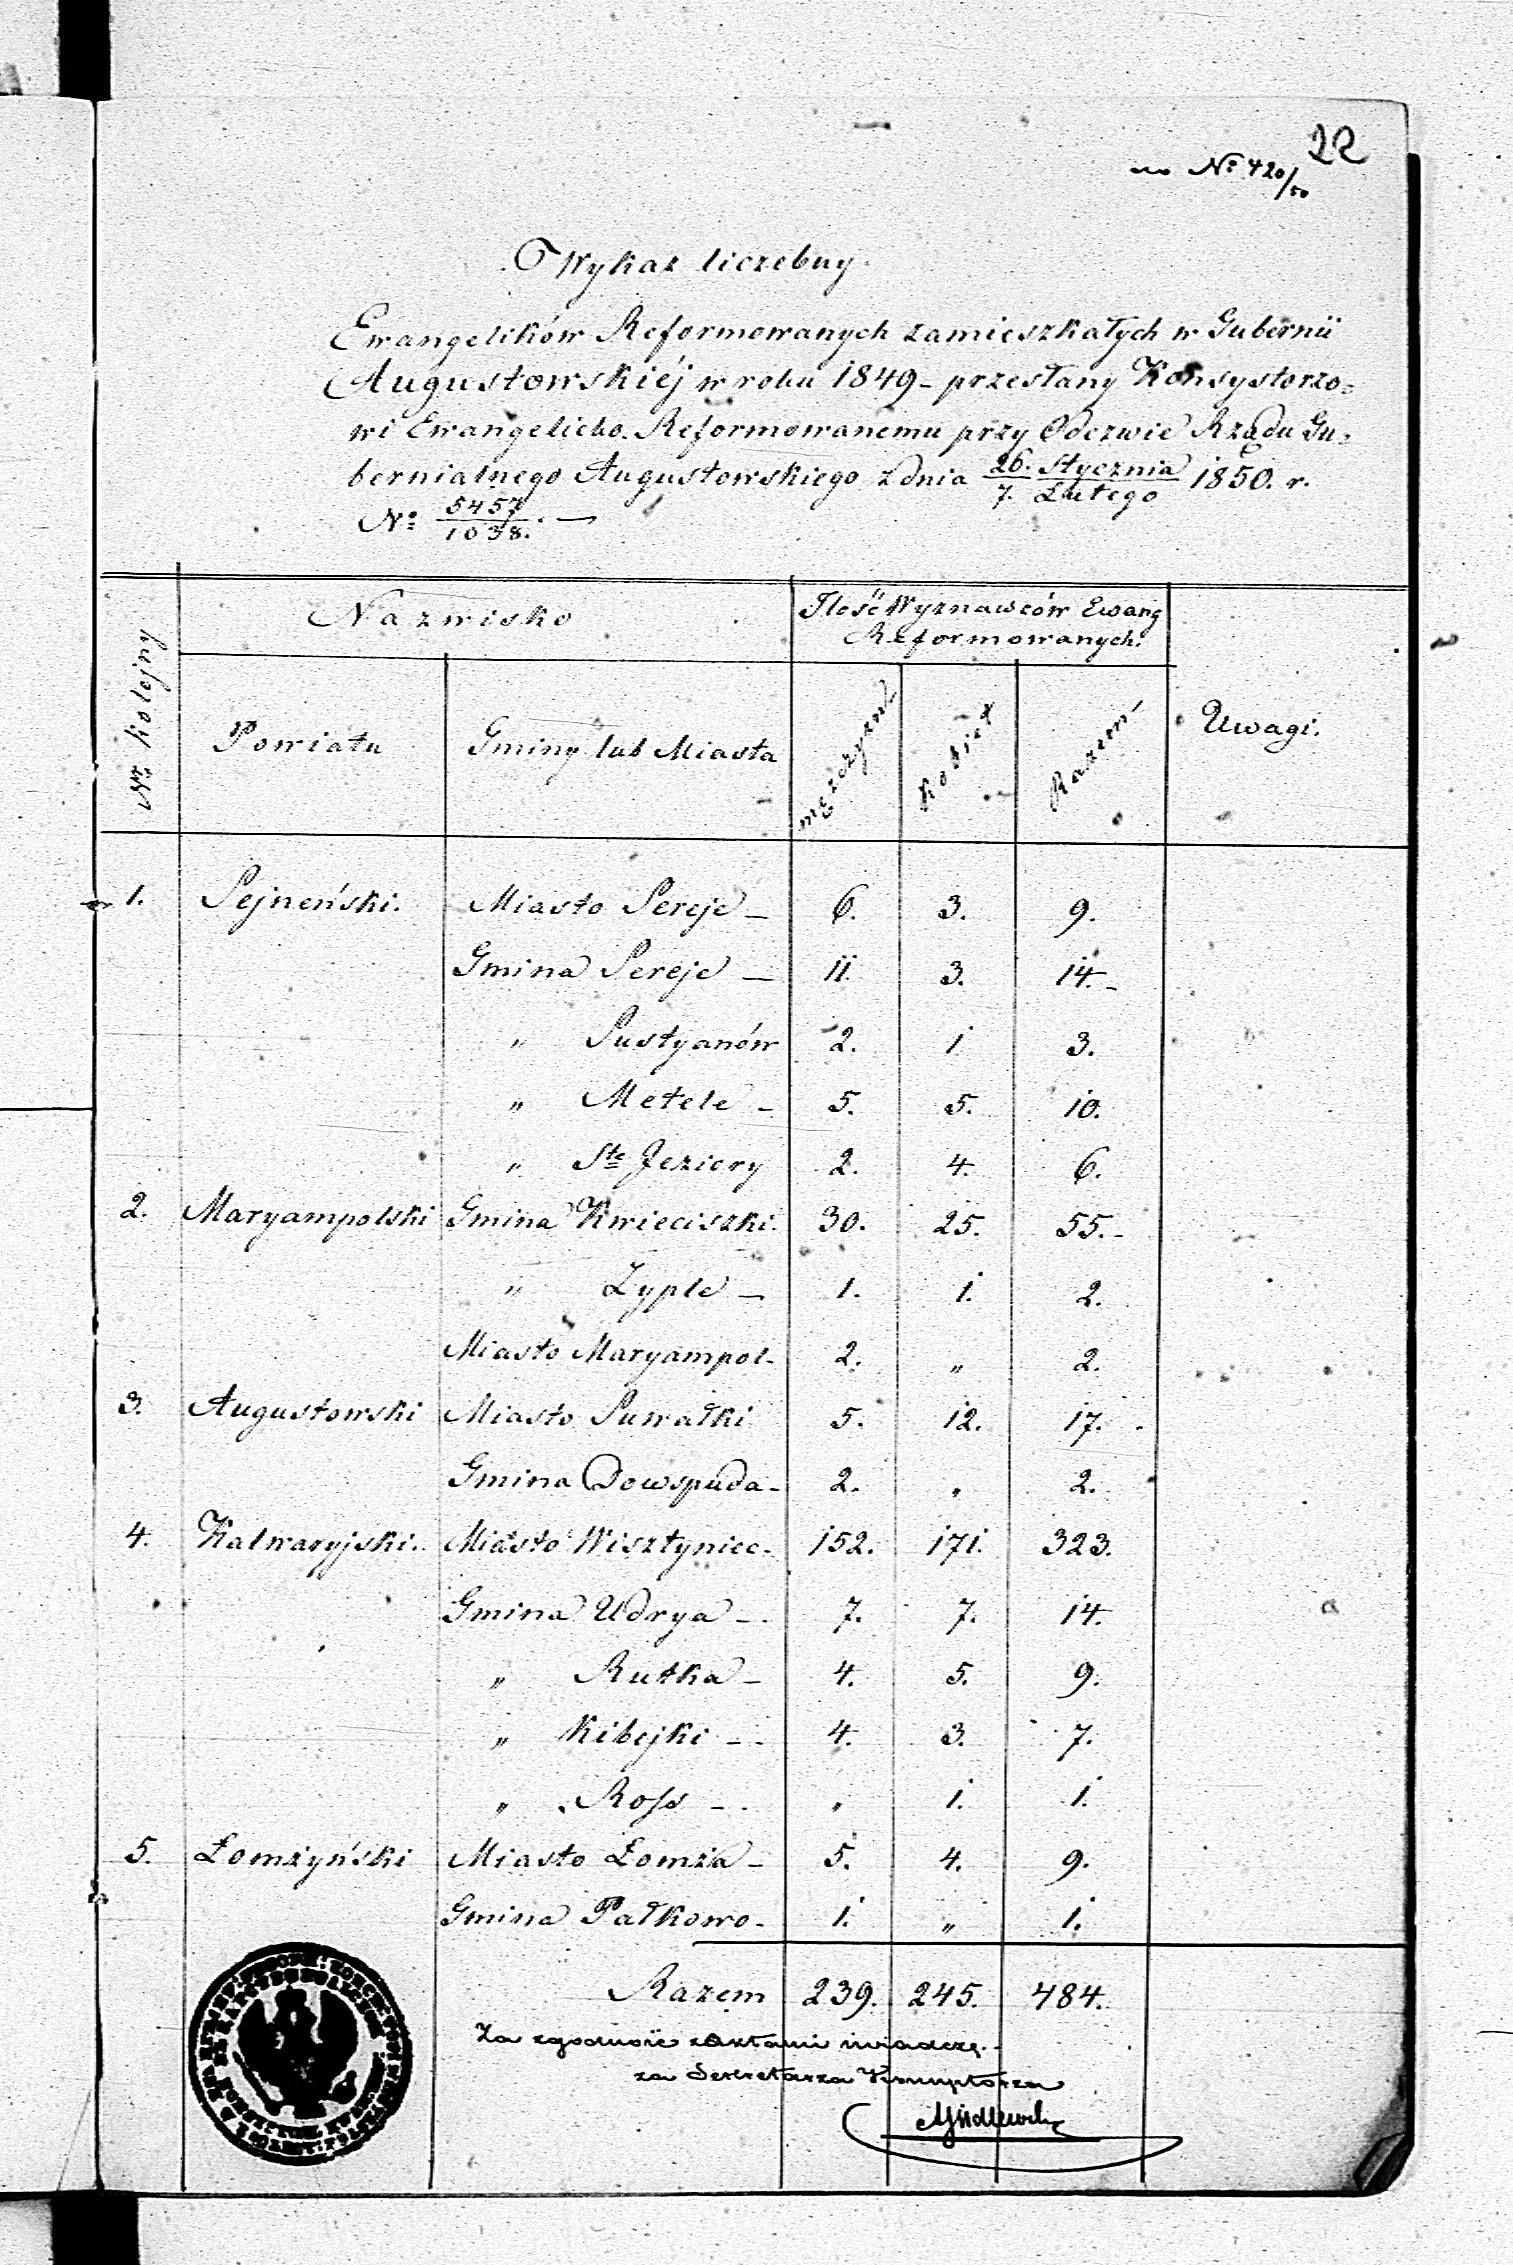 22
ao Nº 420/50
Wykaz liczebny
Ewangelików Reformowanych zamieszkałych w Gubernii
Augustowskiéj w roku 1849 – przesłany Konsystorzo=
wi Ewangelicko. Reformowanemu przy Odezwie Rządu Gu=
bernialnego Augustowskiego z dnia 26. Stycznia / 7. Lutego 1850. r.
Nº 5457 / 1038. —
Nr kolejny Nazwisko Ilość Wyznawców Ewang Reformowanych. Uwagi.
Powiatu Gminy lub Miasta mężczyzn Kobiet Razem
1. Sejneński. Miasto Sereje – 6. 3. 9.
Gmina Sereje — 11. 3. 14. –
" Sustyanów 2. 1 3.
" Metele – 5. 5. 10.
" Ste Jeziory 2. 4. 6.
2. Maryampolski Gmina Kwieciszki. 30. 25. 55. –
" Zyple — 1. 1. 2.
Miasto Maryampol – 2. " 2.
3. Augustowski Miasto Suwałki 5. 12. 17. –
Gmina Dowspuda – 2. " 2.
4. Kalwaryjski. Miasto Wisztyniec – 152. 171. 323.
Gmina Udrya – 7. 7. 14.
" Rutka – 4. 5. 9.
" Kibejki – 4. 3. 7.
" Ross – " 1. 1.
5. Łomżyński Miasto Łomża – 5. 4. 9.
Gmina Pałkowo – 1. " 1.
Razem 239. 245. 484.
Za zgodność z aktami świadczę. –
za Sekretarza